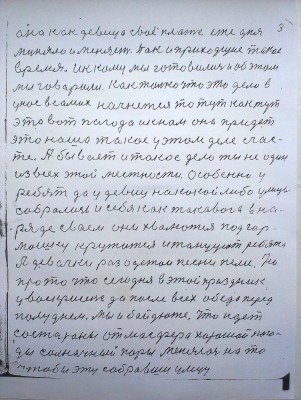 3
а на как девица своё платье еже дня
миняло и меняет. Так и приходящие такое
время. И к кому мы готовились и об этом
мы говорили. Как только что это дело в
у нас начнется то тут как тут
эта вот погода и к нам она придет
это наше такое у этом деле счас-
те. А бывает и такое дело ты не один
из всех этой местности особенно у
ребят да у девиц на какой либо улице
собрались и себя как такового в на-
ряде своем они хвалются под гар-
мошку крутится и танцуют ребята
А девочки разодетои песни пели. Но
про то что сегодня в этой праздник
у воскресенье да после всех обеда перед
полуднем. Мы и байдюте, что идет
со стороны отмасфера хорошей пого-
ды солнечный поры менялся на то
чтобы эту собравши улицу